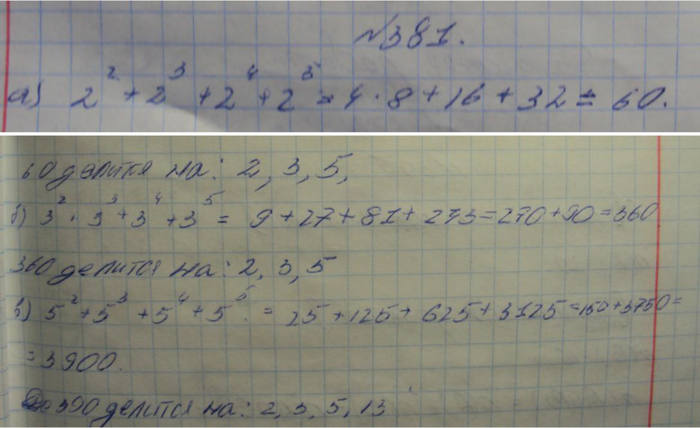 №381.
а) 2² + 2³ + 2⁴ + 2⁵ = 4 · 8 + 16 + 32 = 60.
60 делится на: 2, 3, 5,
б) 3² + 3³ + 3⁴ + 3⁵ = 9 + 27 + 81 + 273 = 270 + 90 = 360
360 делится на: 2, 3, 5
в) 5² + 5³ + 5⁴ + 5⁵ = 25 + 125 + 625 + 3125 = 150 + 3750 =
= 3900.
390 делится на: 2, 3, 5, 13